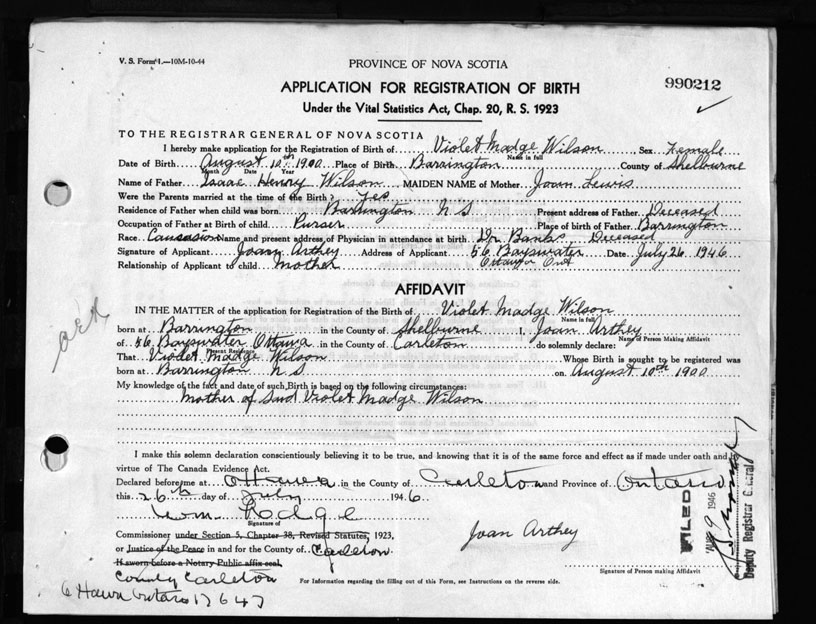 V. S. Form 1.—10M-10-44
PROVINCE OF NOVA SCOTIA
990212
APPLICATION FOR REGISTRATION OF BIRTH
Under the Vital Statistics Act, Chap. 20, R. S. 1923
TO THE REGISTRAR GENERAL OF NOVA SCOTIA
I hereby make application for the Registration of Birth of Violet Madge Wilson, Sex Female
Name in full
Date of Birth August 10th 1900 Place of Birth Barrington County of Shelburne
Month Date Year
Name of Father Isaac Henry Wilson MAIDEN NAME of Mother Joan Lewis
Were the Parents married at the time of the Birth? Yes
Residence of Father when child was born Barrington N S Present address of Father Deceased
Occupation of Father at Birth of child Purser Place of birth of Father Barrington
Race Causasion Name and present address of Physician in attendance at birth Dr Banks Deceased
Signature of Applicant Joan Arthey Address of Applicant 56 Bayswater Date July 26 1946
Relationship of Applicant to child Mother Ottawa Ont
AFFIDAVIT
IN THE MATTER of the application for Registration of the Birth of Violet Madge Wilson
Name in full
born at Barrington in the County of Shelburne I, Joan Arthey
Name of Person Making Affidavit
of 56 Bayswater Ottawa in the County of Carleton do solemnly declare:
Present Residence
That Violet Madge Wilson Whose Birth is sought to be registered was
born at Barrington N S on August 10th 1900
My knowledge of the fact and date of such Birth is based on the following circumstances:
Mother of Said Violet Madge Wilson
I make this solemn declaration conscientiously believing it to be true, and knowing that it is of the same force and effect as if made under oath and by
virtue of The Canada Evidence Act.
Declared before me at Ottawa in the County of Carleton and Province of Ontario
this 26th day of July 1946
Wm Hodge
Signature of
Joan Arthey
Commissioner under Section 5, Chapter 38, Revised Statutes, 1923,
or Justice of the Peace in and for the County of Carleton
If sworn before a Notary Public affix seal.
Signature of Person making Affidavit
County Carleton
For Information regarding the filling out of this Form, see Instructions on the reverse side.
Ottawa Ontario
FILED
AUG 9 1946
Deputy Registrar General